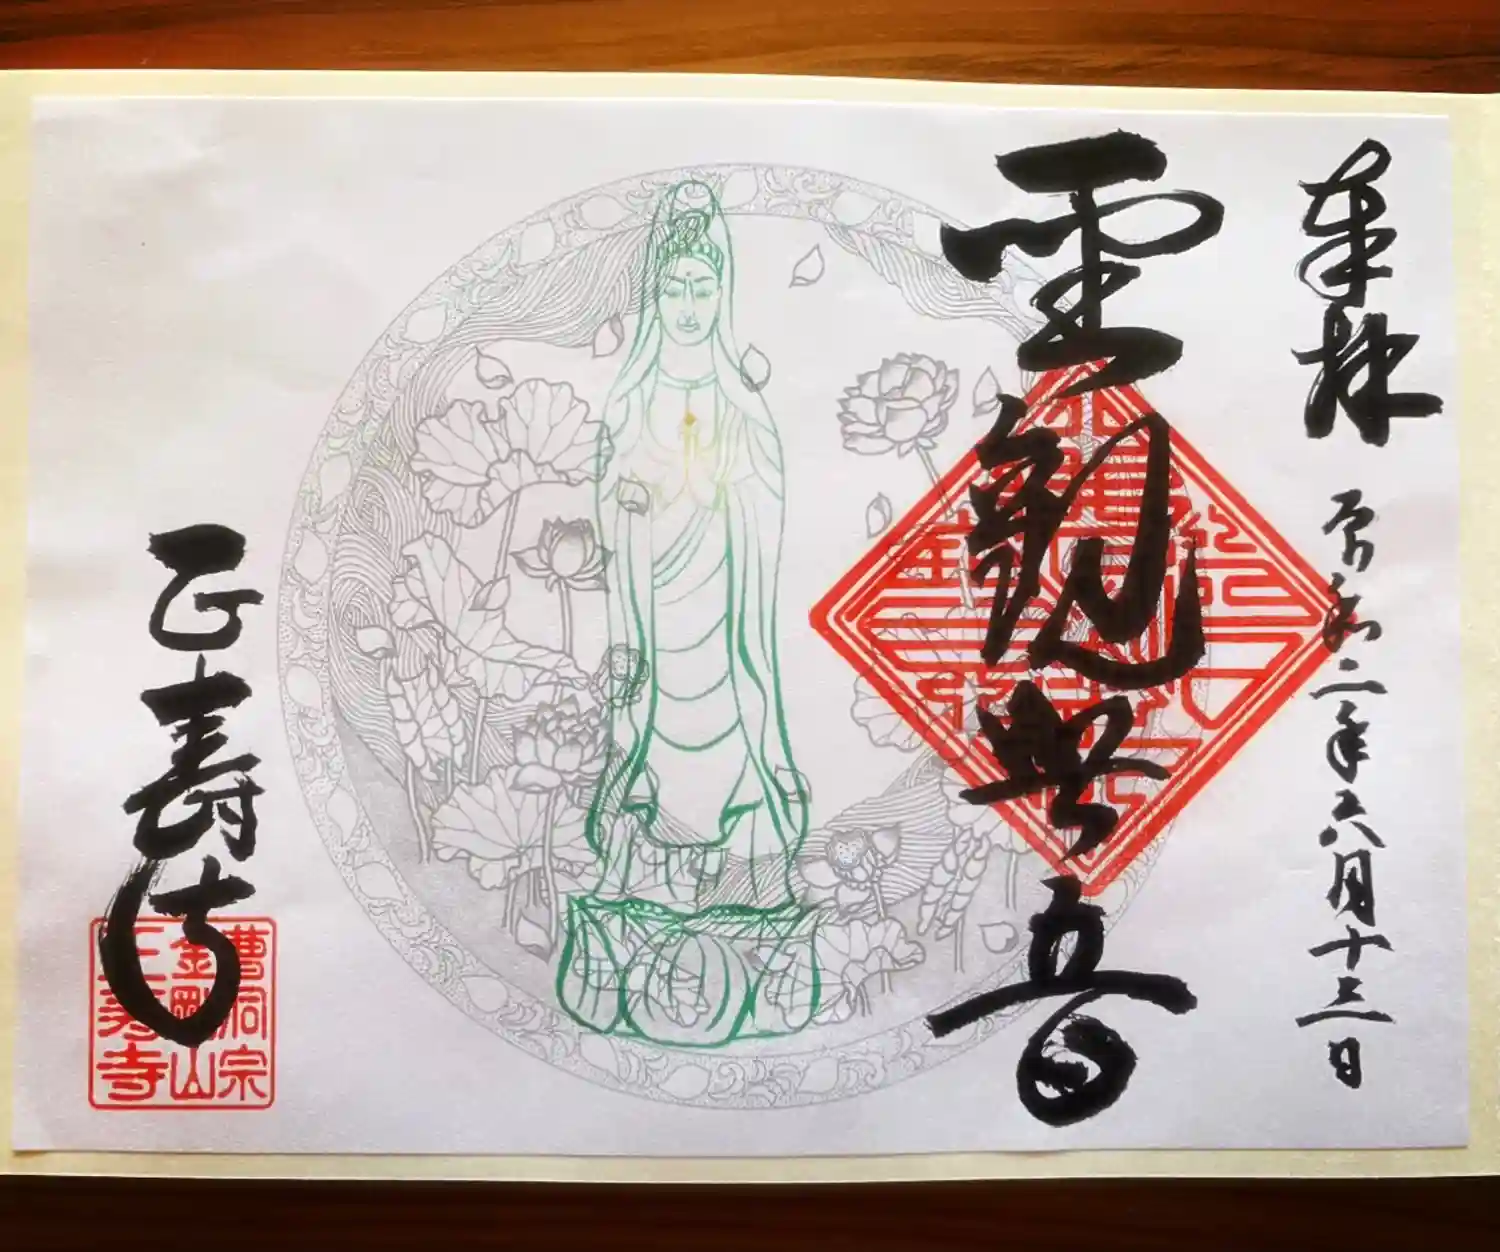 奉拝
令和二年六月十三日
聖観世音
正壽寺
曹洞宗
金剛山
正壽寺